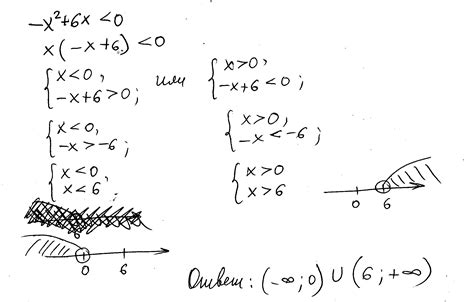 -x²+6x <0
x(-x+6) <0
{ x<0, -x+6>0; или { x>0, -x+6<0;
{ x<0, -x>-6; { x>0, -x<-6;
{ x<0, x<6; { x>0 x>6
0 6
0 6
Ответ: (-∞;0) ∪ (6;+∞)